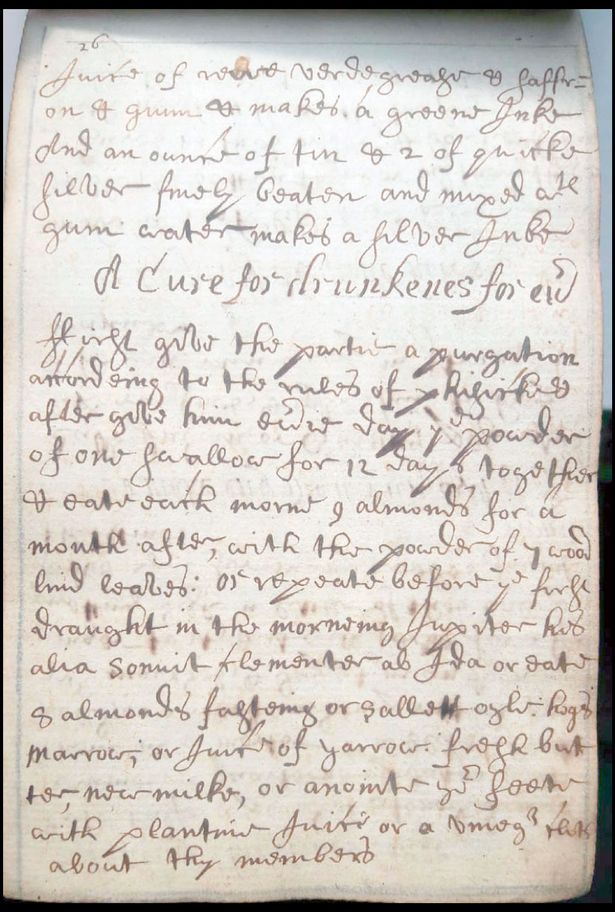 26
Juice of rewe verdegrease & saffr=
on & gum & makes a greene Inke
And an ounce of tin & 2 of quicke
silver finely beaten and mixed wth
gum water makes a silver Inke
A Cure for drunkenes for eu'
ffirst give the partie a purgation
accordeing to the rules of phisicke &
after give him eu'ie day ye powder
of one swallow for 12 days together
& eate each morne 9 almonds for a
month after, with the powder of 7 wood
bind leaves: or repeate before ye first
draught in the morneing Jupiter his
alia sonuit clementer ab Ida or eate
8 almonds fasteing or sallett oyle, hogs
marrow, or Juice of yarrow fresh but
ter, new milke, or anointe ye feete
with plantine Juice or a vinegr cloth
about thy members